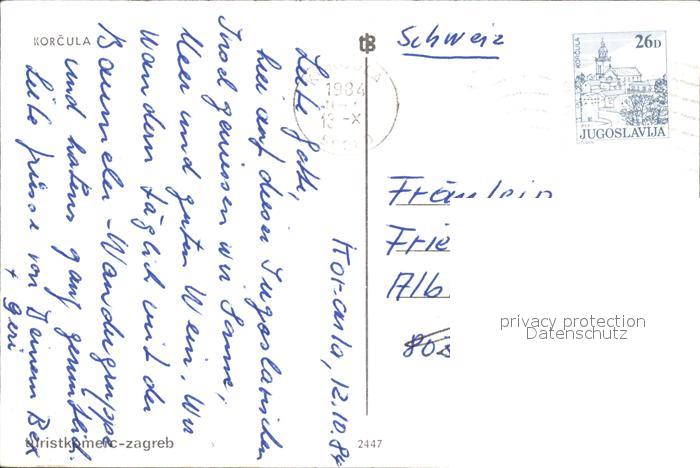 KORČULA
Korcula, 12.10.84
Liebe Getti,
hier auf dieser Jugoslavischen
Insel geniessen wir Sonne,
Meer und guten Wein. Wir
wandern täglich mit der
Baumeler-Wandergruppe
und habens ganz gemütlich.
Liebe Grüsse von Deinem Bex
+ Geri
turistkomerc-zagreb
2447
tB
1984
13-X
Schweiz
KORČULA
26D
JUGOSLAVIJA
Fräulein
Frie
Alb
privacy protection
Datenschutz